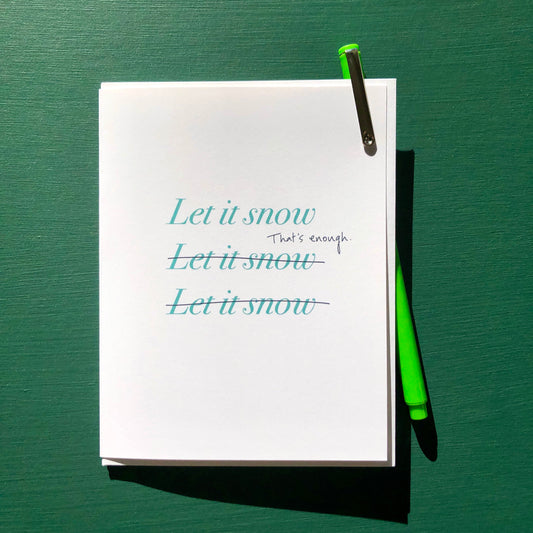 Let it snow
That's enough.
Let it snow
Let it snow